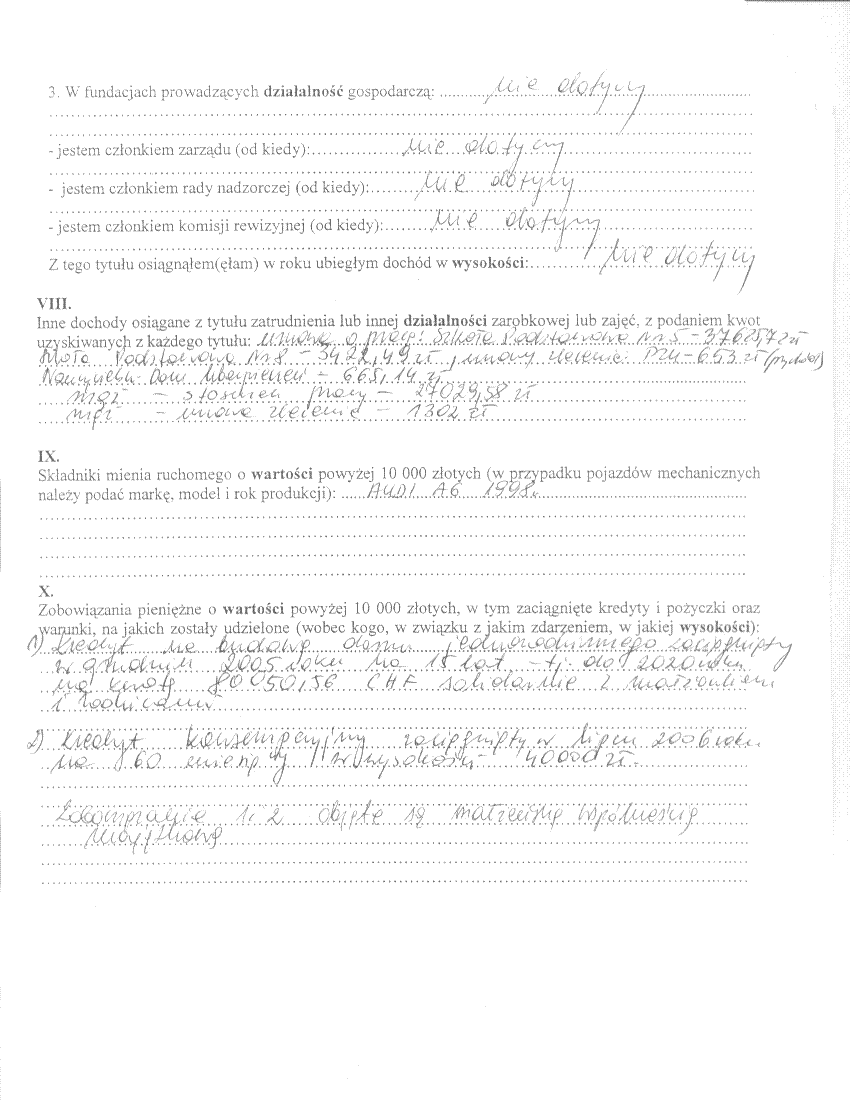 3. W fundacjach prowadzących działalność gospodarczą: nie dotyczy
- jestem członkiem zarządu (od kiedy): nie dotyczy
- jestem członkiem rady nadzorczej (od kiedy): nie dotyczy
- jestem członkiem komisji rewizyjnej (od kiedy): nie dotyczy
Z tego tytułu osiągnąłem(ęłam) w roku ubiegłym dochód w wysokości: nie dotyczy
VIII.
Inne dochody osiągane z tytułu zatrudnienia lub innej działalności zarobkowej lub zajęć, z podaniem kwot
uzyskiwanych z każdego tytułu: umowa o pracę: Szkoła Podstawowa Nr 5 - zł
Szkoła Podstawowa Nr 8 - 3422,49 zł, umowy zlecenie: PZU - 653 zł (przychód)
Dom Ubezpieczeń - 665,14 zł
mąż - stosunek pracy - 27029,58 zł
mąż - umowa zlecenie - 1302 zł
IX.
Składniki mienia ruchomego o wartości powyżej 10 000 złotych (w przypadku pojazdów mechanicznych
należy podać markę, model i rok produkcji): AUDI A6 1998r.
X.
Zobowiązania pieniężne o wartości powyżej 10 000 złotych, w tym zaciągnięte kredyty i pożyczki oraz
warunki, na jakich zostały udzielone (wobec kogo, w związku z jakim zdarzeniem, w jakiej wysokości):
1) Kredyt na budowę domu jednorodzinnego zaciągnięty
w grudniu 2005 roku na 15 lat - tj. do 2020 roku
na kwotę 80050,56 CHF solidarnie z małżonkiem
i rodzicami
2) Kredyt konsumpcyjny zaciągnięty w lipcu 2006 roku
na 60 miesięcy w wysokości 40000 zł.
Zobowiązanie 1 i 2 objęte są małżeńską wspólnością
majątkową